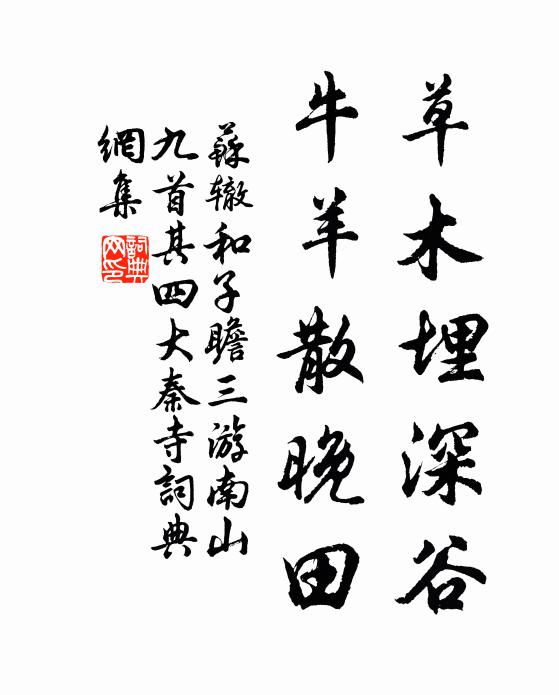 草木埋深谷
牛羊散晚田
蘇辙和子瞻三游南山
九首其四大秦寺詞典
網集
詞典
网印